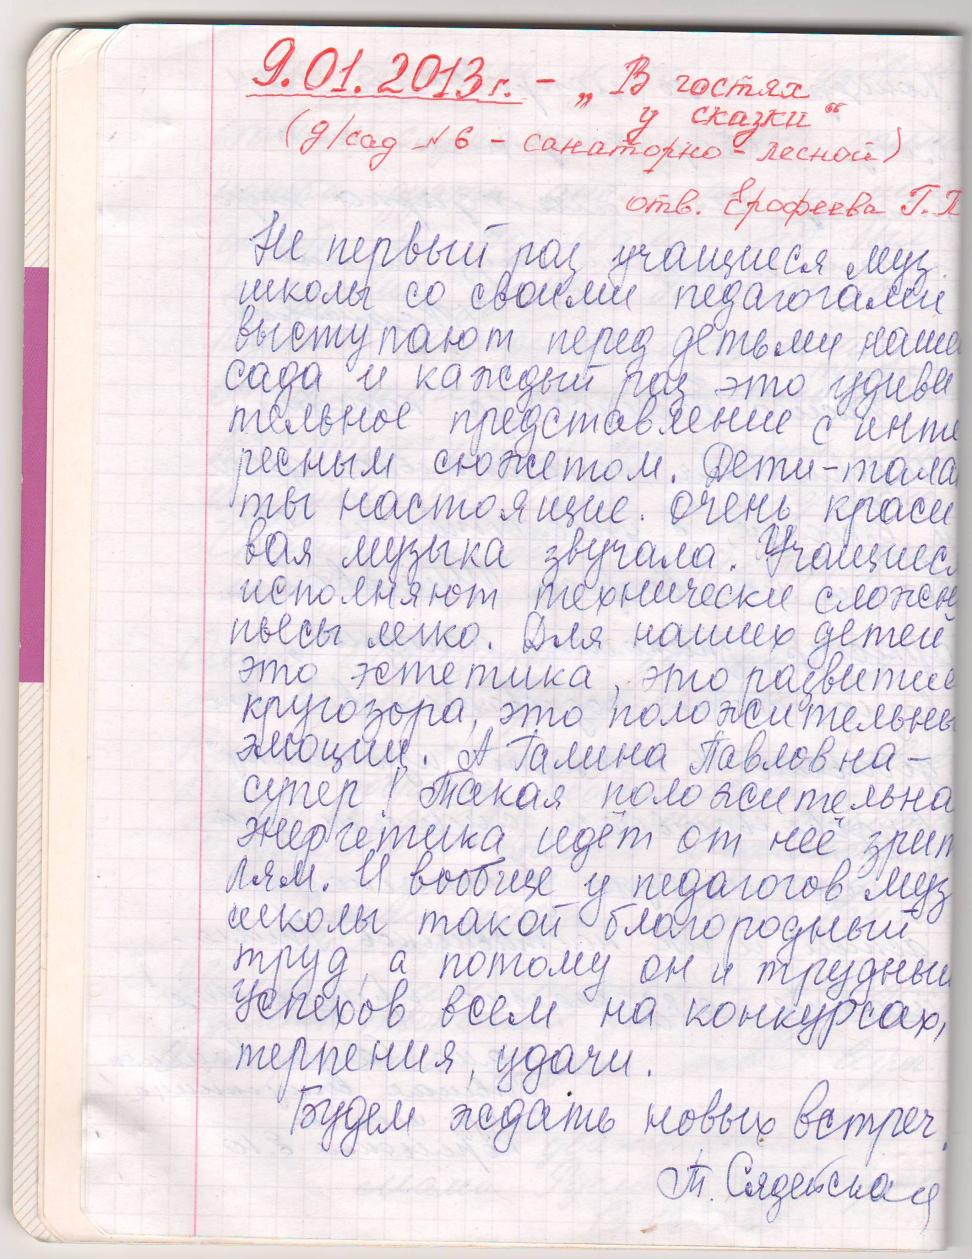 9.01.2013г. - „В гостях
у сказки“
(д/сад №6 - санаторно-лесной)
отв. Ерофеева Г.П
Не первый раз учащиеся муз.
школы со своими педагогами
выступают перед детьми наше
сада и каждый раз это удиви
тельное представление с инте
ресным сюжетом. Дети-тала
ты настоящие. Очень краси
вая музыка звучала. Учащиес
исполняют технически сложн
пьесы легко. Для наших детей
это эстетика, это развитие
кругозора, это положительны
эмоции. А Галина Павловна-
супер! Такая положительна
энергетика идёт от неё зрит
лям. И вообще у педагогов муз
школы такой благородный
труд, а потому он и трудный
Успехов всем на конкурсах,
терпения, удачи.
Будем ждать новых встреч.
Т. Сядейская